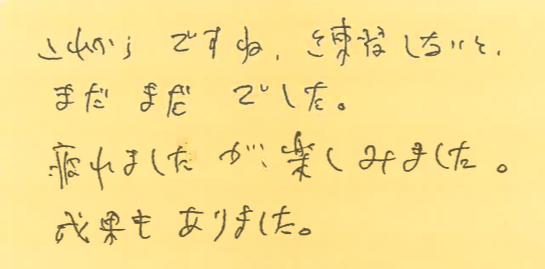 これからですね、練習しないと、
まだまだでした。
疲れましたが、楽しみました。
成果もありました。